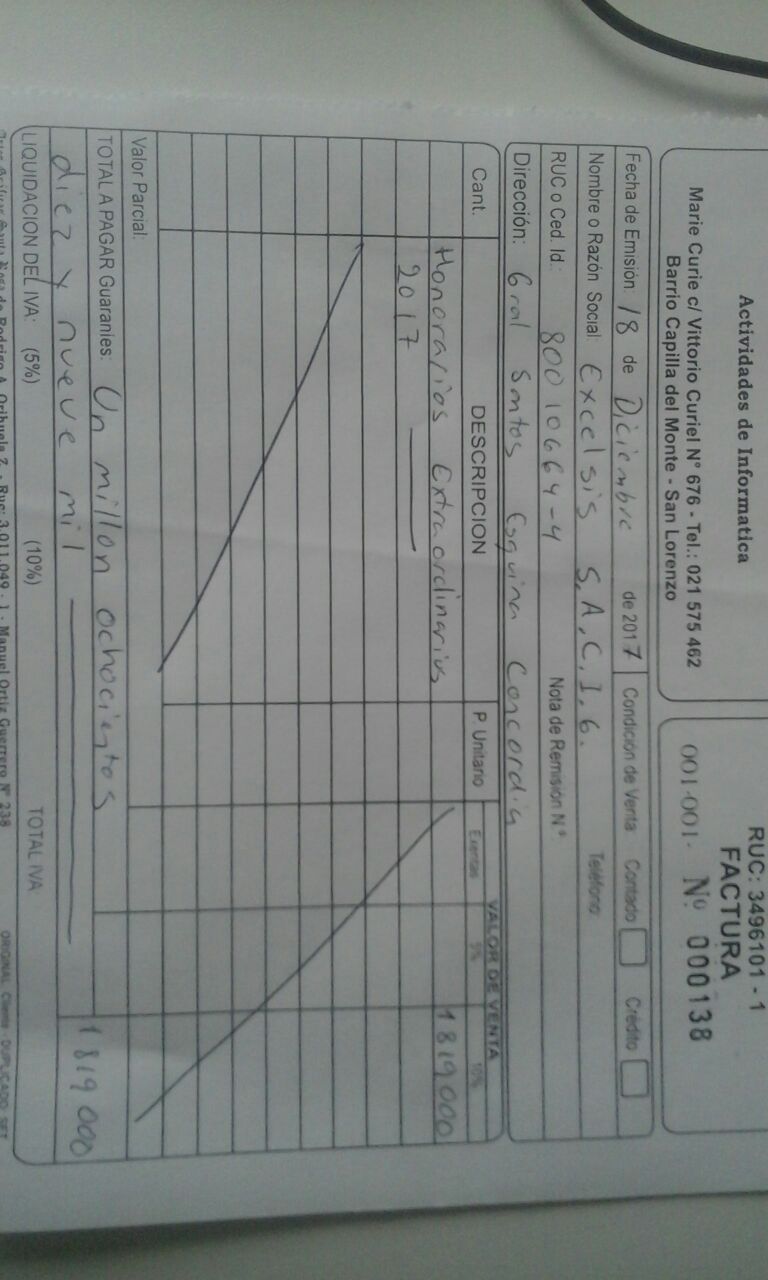 Actividades de Informatica
Marie Curie c/ Vittorio Curiel N° 676 - Tel.: 021 575 462
Barrio Capilla del Monte - San Lorenzo
RUC: 3496101 - 1
FACTURA
001-001- Nº 000138
Fecha de Emisión: 18 de Diciembre de 2017 Condición de Venta Contado Crédito
Nombre o Razón Social: Excelsis S.A.C.I.G. Teléfono
RUC o Ced. Id.: 80010664-4 Nota de Remisión N°
Dirección: Gral Santos Esquina Concordia
Cant. DESCRIPCION P. Unitario VALOR DE VENTA
Exentas 5% 10%
Honorarios Extraordinarios 1819000
2017
Valor Parcial:
TOTAL A PAGAR Guaranies: Un millon ochocientos
diez y nueve mil 1819000
LIQUIDACION DEL IVA: (5%) (10%) TOTAL IVA
de Rodrigo A. Orihuela Z. - Ruc: 3.011.049 - 1 - Manuel Ortiz Guerrero N° 238 ORIGINAL: Cliente DUPLICADO: SET